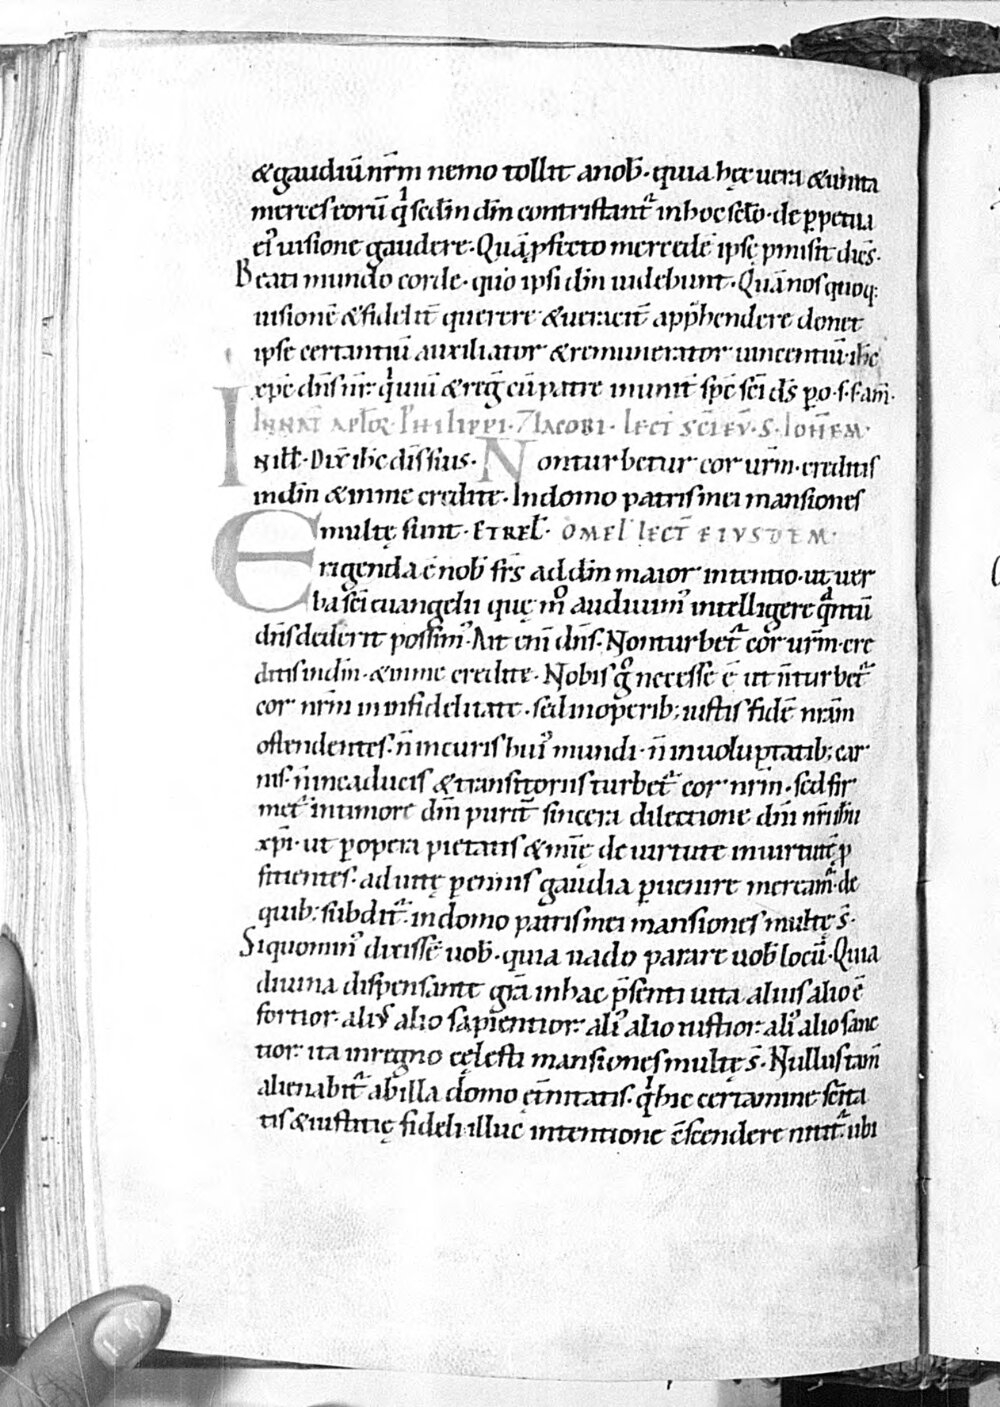 &gaudiū nr̄m nemo tollit a nob̄. quia hęc uera & unita
merces eorū qͥ sedm̄ dm̄ contristant᷑ inhoc sclo. de ꝑpetua
eiꝰ uisione gaudere. Quā ꝓfecto mercedē ipsę ꝓmisit dicēs.
Beati mundo corde. quo ipsi dm̄ uidebunt. Quā nos quoq;
uisionē & fidelit̄ querere & ueracit̄ app̄hendere donet
ipse certantiū auxiliator & remunerator uincentiū. ihc̄
xpc̄ dn̄s nr̄. qͥ uiuit & reḡ cū patre in unit̄ spc̄ scī ds̄ ꝑ o. s. s. am̄.
IN NAT̄ APLOꝜ. PHILIPPI. 7 IACOBI. LECT̄ SC̄I EV̄. S. IOH̄EM.
IN ill̄. Dix̄ ihc̄ discīs suis. Non turbetur cor ur̄m. creditis
indm̄ & inme credite. Indomo patris mei mansiones
multę sunt. ET REL̄. OMEL̄ LECT̄ EIVSDEM.
Erigenda ē nob̄ fr̄s ad dm̄ maior intentio. ut uer
ba scī euangelii quę mͦ audiuimꝰ intelligere qͣntū
dn̄s dederit possimꝰ. Ait eni dn̄s. Non turbet᷑ cor ur̄m. cre
ditis indm̄. & inme credite. Nobis gͦ necesse ē ut n̄ turbet᷑
cor nr̄m in infidelitate. sed in operib; iustis fidē nr̄am
ostendentes. n̄ in curis huiꝰ mundi. n̄ in uoluptatib; car
nis. n̄ in caducis & transitoriis turbet᷑ cor nr̄m. sed fir
met᷑ in timore dm̄ purit̄ sincera dilectione dn̄i nr̄i ihū
xpī. ut ꝑ opera pietatis & mīę de uirtute in uirtutē ꝓ
ficientes. ad uitę ꝑennis gaudia ꝑuenire meream᷑. de
quib; subdit᷑. in domo patris mei mansiones multę s̄.
Siquominꝰ dixissē uob̄. quia uado parare uob̄ locū. Quia
diuina dispensante grā in hac p̄senti uita alius alio ē
fortior. aliꝰ alio sapientior. aliꝰ alio iustior. aliꝰ alio sanc
tior. ita in regno cęlesti mansiones multę s̄. Nullus tam̄
alienabit᷑ ab illa domo ęt̄nitatis. qͥ hic certamine scīta
tis & iustitię fideli illuc intentione c̄scendere nitit᷑. ubi